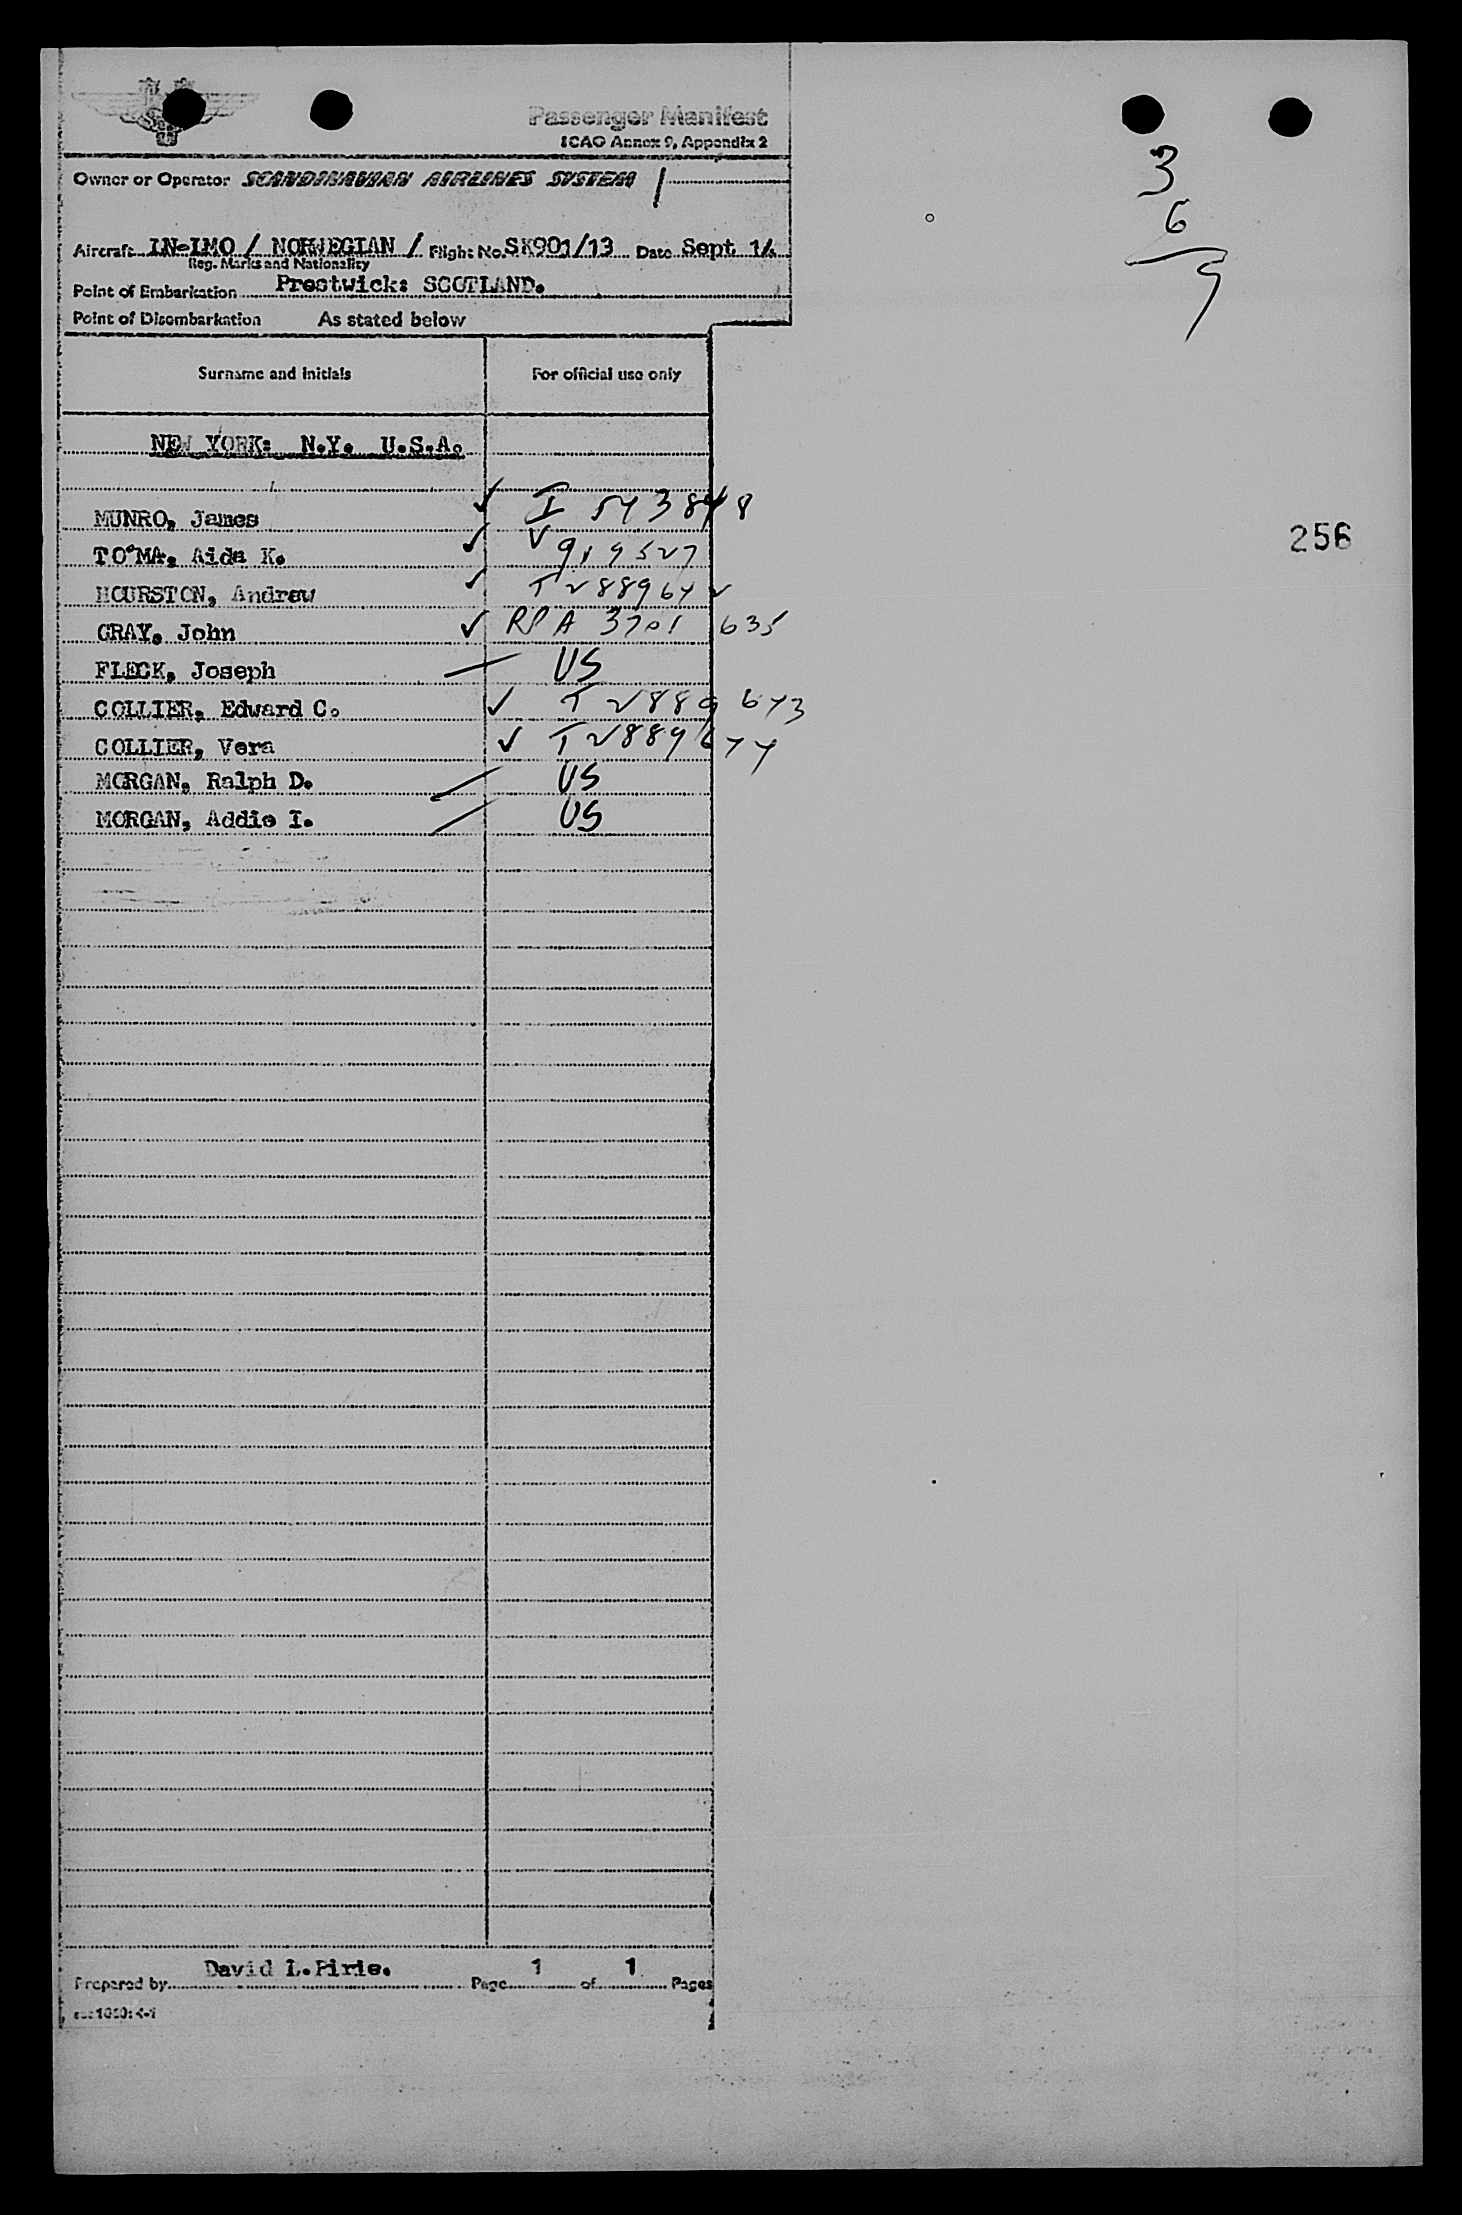 Passenger Manifest
ICAO Annex 9, Appendix 2
Owner or Operator SCANDINAVIAN AIRLINES SYSTEM
Aircraft LN-LMO / NORWEGIAN / Flight No. SK901/13 Date Sept 14
Reg. Marks and Nationality
Point of Embarkation Prestwick: SCOTLAND.
Point of Disembarkation As stated below
3
6
9
Surname and initials For official use only
NEW YORK: N.Y. U.S.A.
MUNRO, James I 543848
TO'MA, Aida K. V 919527
HOURSTON, Andrew T2889642
GRAY, John RPA 3701635
FLECK, Joseph US
COLLIER, Edward C. T2889643
COLLIER, Vera T2889644
MORGAN, Ralph D. US
MORGAN, Addie I. US
256
Prepared by David L. Pirie. Page 1 of 1 Pages